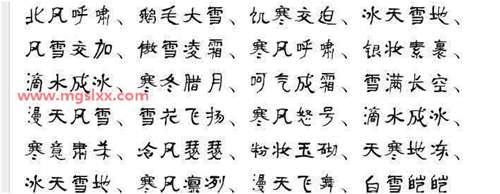 北风呼啸、鹅毛大雪、饥寒交迫、冰天雪地、
风雪交加、傲雪凌霜、寒风呼啸、银妆素裹、
滴水成冰、寒冬腊月、呵气成霜、雪满长空、
www.mgslxx.com
漫天风雪、雪花飞扬、寒风怒号、滴水成冰、
寒意肃杀、冷风瑟瑟、粉妆玉砌、天寒地冻、
冰天雪地、寒风凛冽、漫天飞舞、白雪皑皑